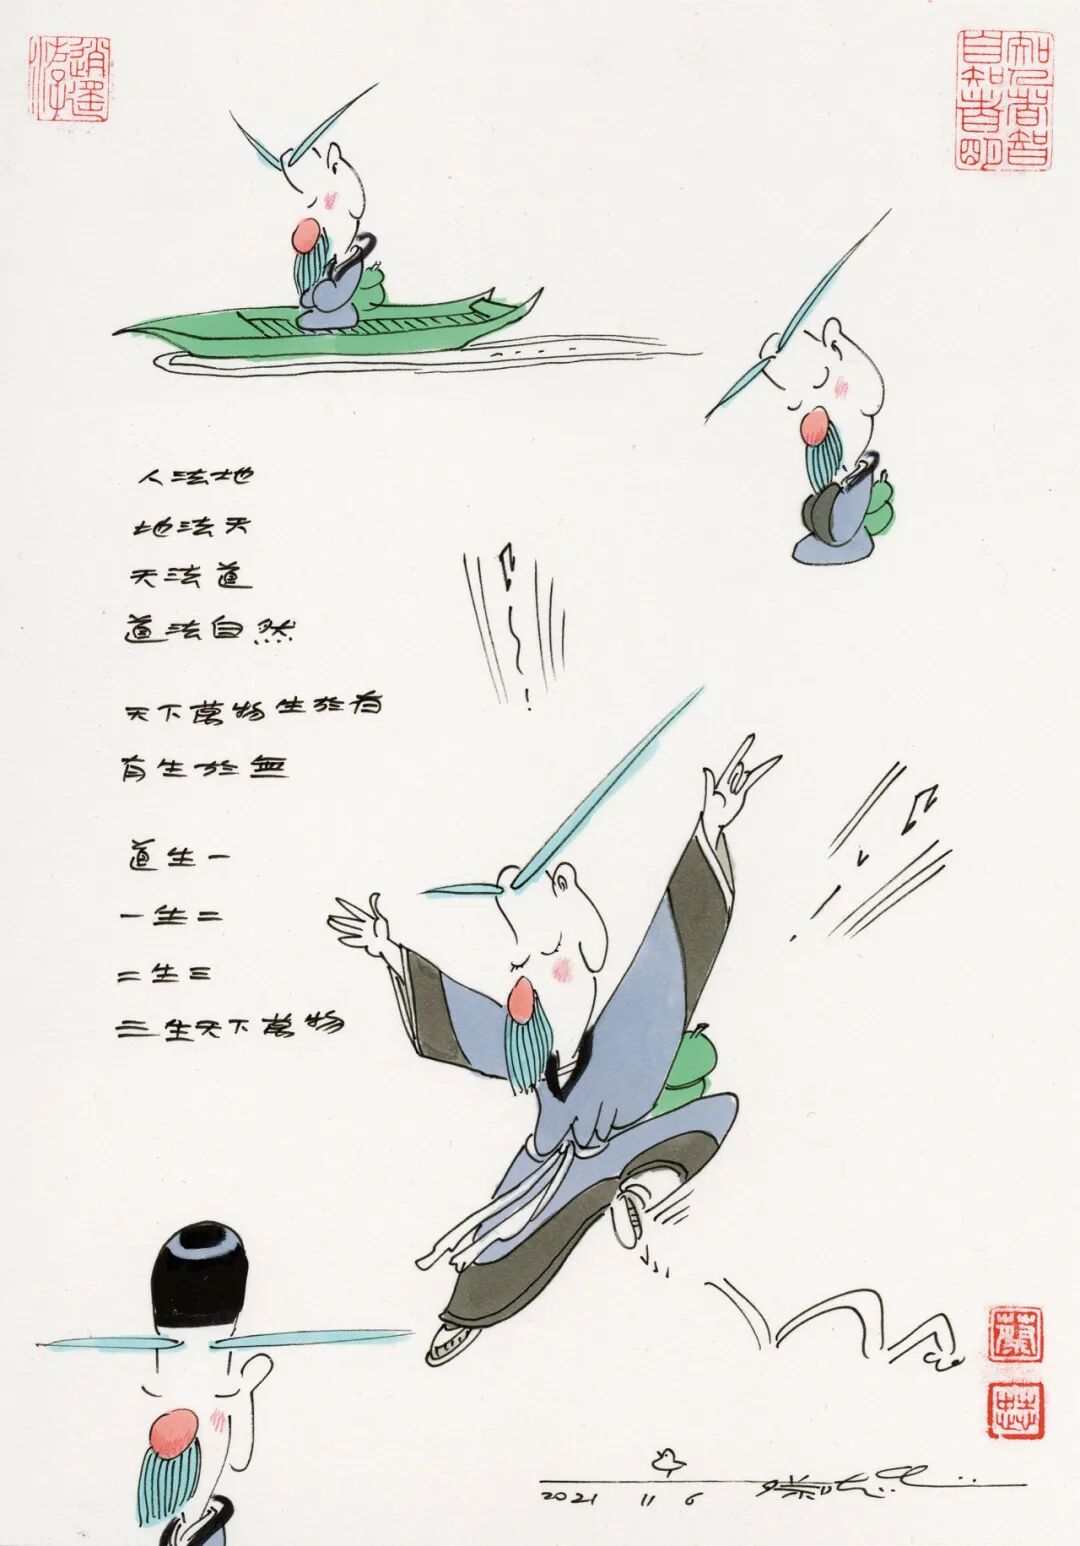 逍遙游
知人者智
自知者明
人法地
地法天
天法道
道法自然
天下萬物生於有
有生於無
道生一
一生二
二生三
三生天下萬物
蔡
志忠
2021 11 6